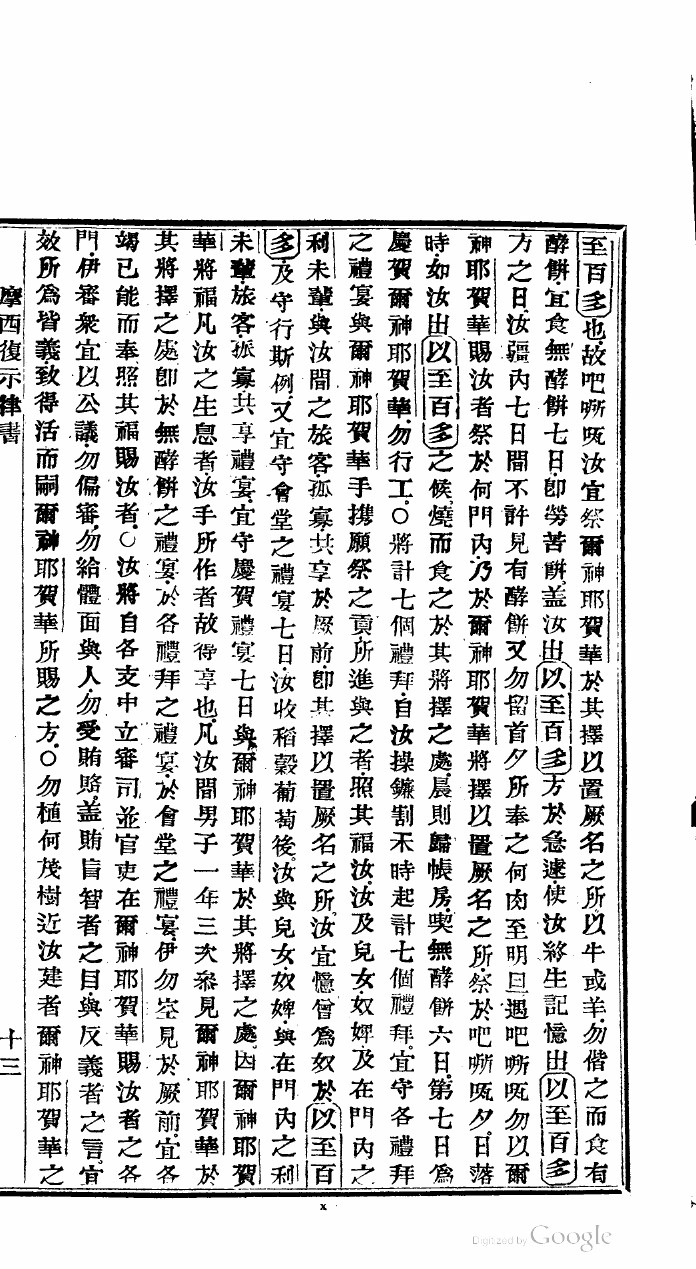 至百多也故吧㗫㕖汝宜祭爾神耶賀華於其擇以置厥名之所以牛或羊勿偕之而食有
酵餅宜食無酵餅七日卽勞苦餅蓋汝出以至百多方於急速使汝終生記憶出以至百多
方之日汝疆內七日間不許見有酵餅又勿留首夕所奉之何肉至明旦遇吧㗫㕖勿以爾
神耶賀華賜汝者祭於何門內乃於爾神耶賀華將擇以置厥名之所祭於吧㗫㕖夕日落
時如汝出以至百多之候燒而食之於其將擇之處晨則歸帳房喫無酵餅六日第七日爲
慶賀爾神耶賀華勿行工○將計七個禮拜自汝操鐮割禾時起計七個禮拜宜守各禮拜
之禮宴與爾神耶賀華手携願祭之貢所進與之者照其福汝汝及兒女奴婢及在門內之
利未輩與汝間之旅客孤寡共享於厥前卽其擇以置厥名之所汝宜憶曾爲奴於以至百
多及守行斯例又宜守會堂之禮宴七日汝收稻穀葡萄後汝與兒女奴婢與在門內之利
未輩旅客孤寡共享禮宴宜守慶賀禮宴七日與爾神耶賀華於其將擇之處因爾神耶賀
華將福凡汝之生息者汝手所作者故得享也凡汝間男子一年三次叅見爾神耶賀華於
其將擇之處卽於無酵餅之禮宴於各禮拜之禮宴於會堂之禮宴伊勿空見於厥前宜各
竭已能而奉照其福賜汝者○汝將自各支中立審司並官吏在爾神耶賀華賜汝者之各
門伊審衆宜以公議勿偏審勿給體面與人勿受賄賂蓋賄盲智者之目與反義者之言宜
效所爲皆義致得活而嗣爾神耶賀華所賜之方○勿植何茂樹近汝建者爾神耶賀華之
摩西復示律書 十三
x
Digitized by Google